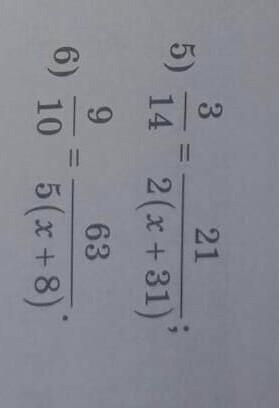 5) 3/14 = 21/2(x + 31);
6) 9/10 = 63/5(x + 8).